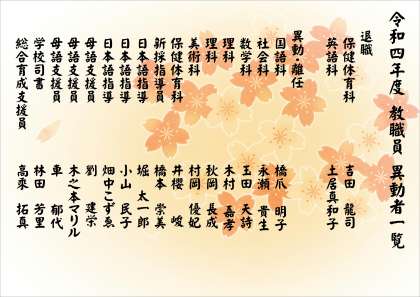 令和四年度 教職員 異動者一覧
退職
保健体育科 吉田 龍司
英語科 土居真和子
異動・離任
国語科 橋爪 明子
社会科 永瀬 貴生
数学科 玉田 天詩
理科 木村 嘉孝
理科 秋岡 長成
美術科 村岡 優妃
保健体育科 井櫻 峻
新採指導員 橋本 崇美
日本語指導 堀 太一郎
日本語指導 小山 民子
日本語指導 畑中こずゑ
母語支援員 劉 建栄
母語支援員 木之本マリル
母語支援員 車 郁代
学校司書 林田 芳里
総合育成支援員 高来 拓真